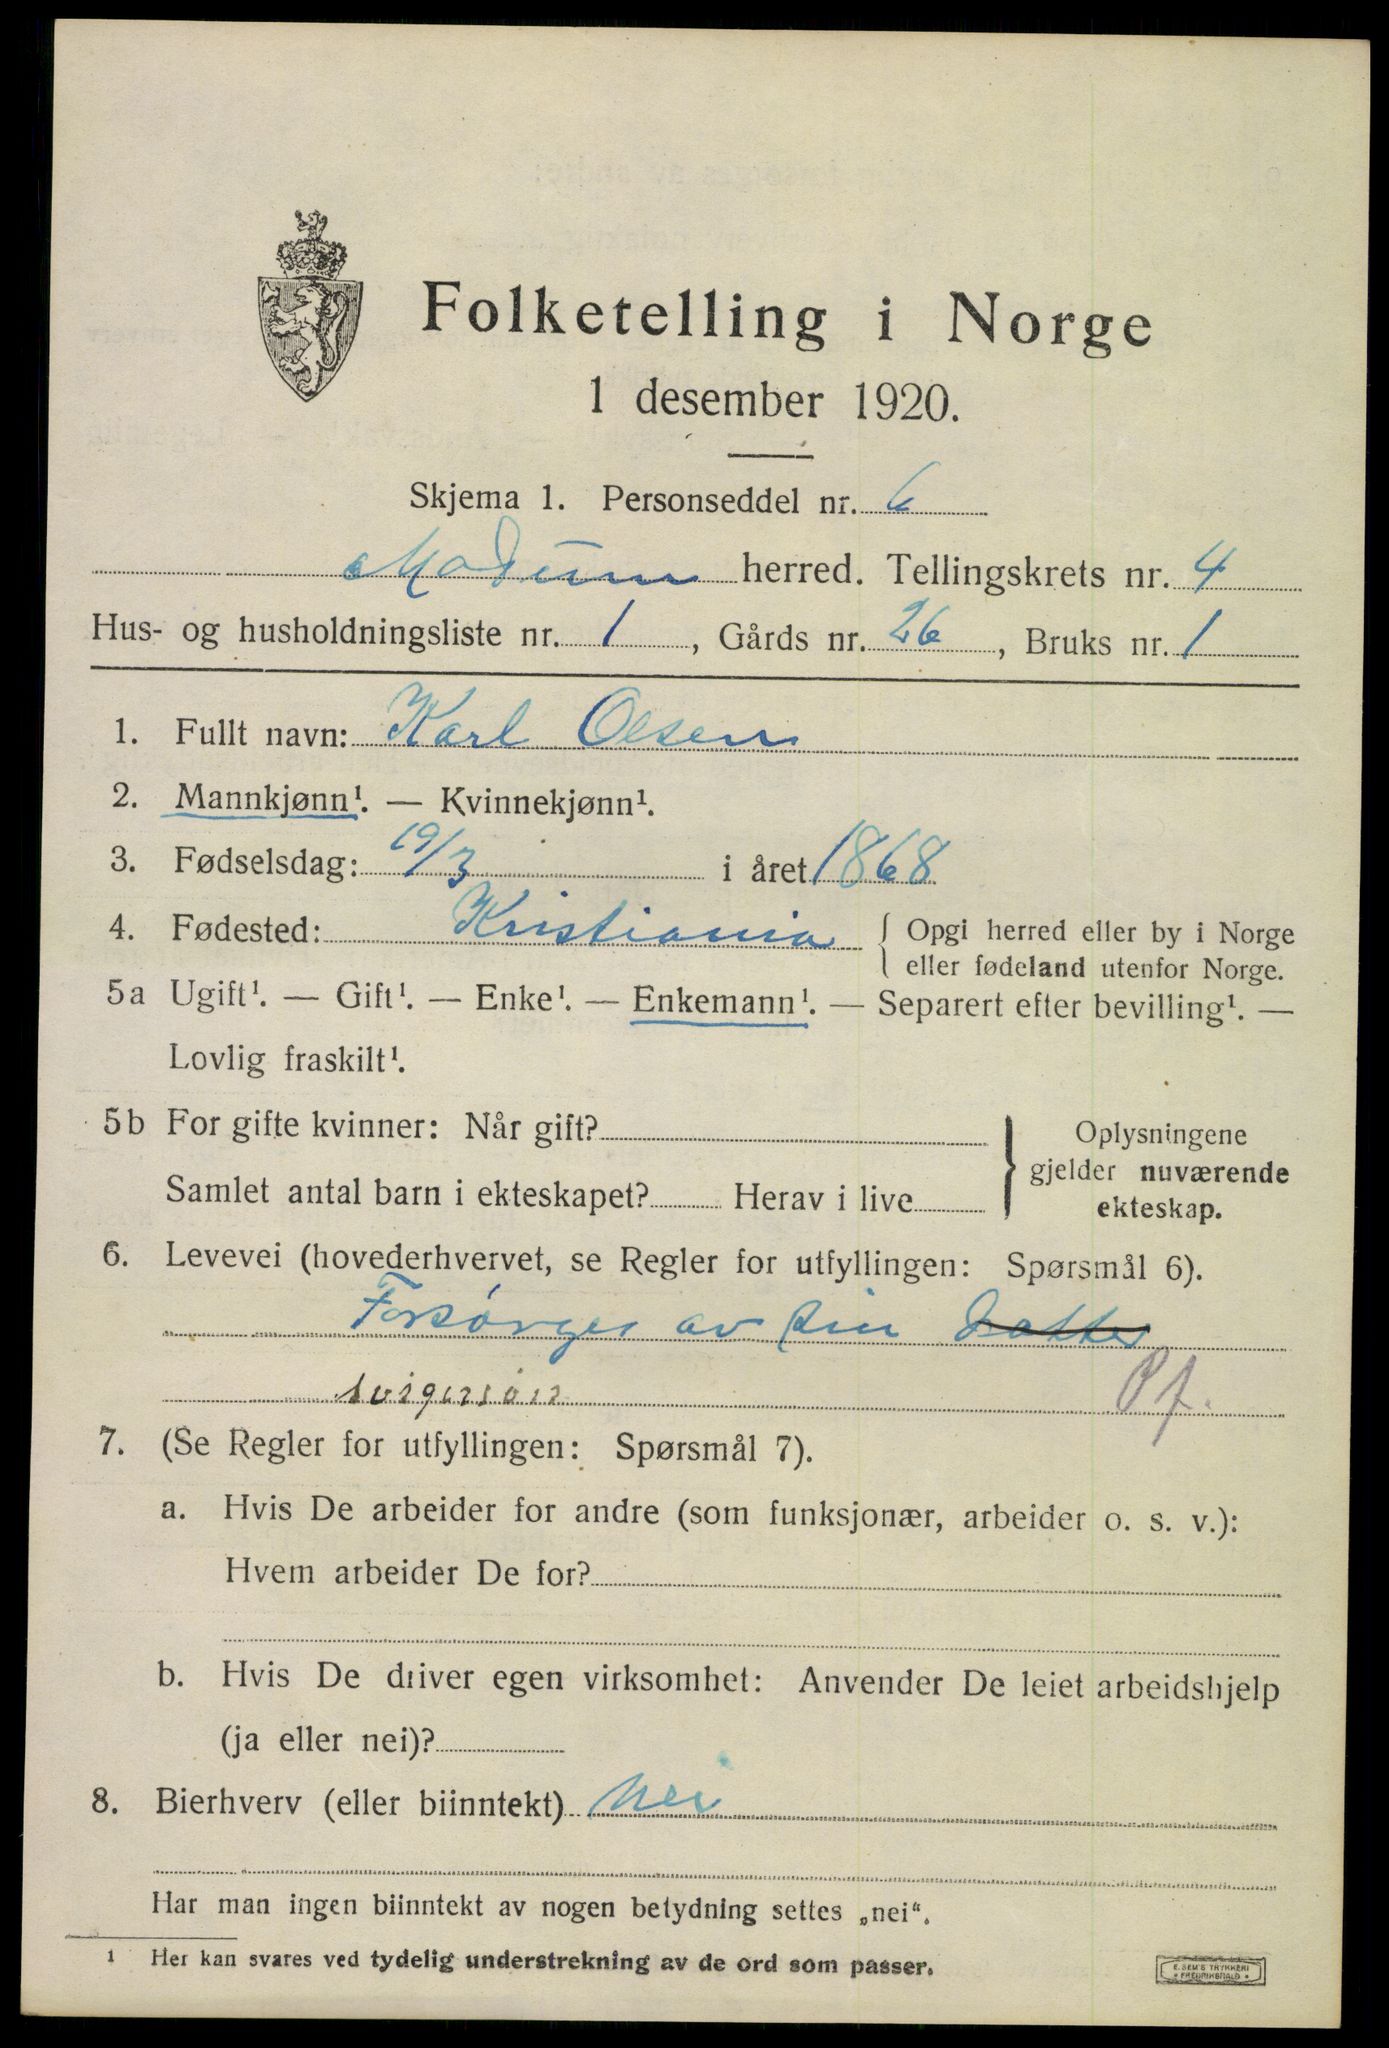 Folketelling i Norge
1 desember 1920.
Skjema 1. Personseddel nr. 6
Modum herred. Tellingskrets nr. 4
Hus- og husholdningsliste nr. 1, Gårds nr. 26, Bruks nr. 1
1. Fullt navn: Karl Olsen
2. Mannkjønn¹. — Kvinnekjønn¹.
3. Fødselsdag: 19/3 i året 1868
4. Fødested: Kristiania { Opgi herred eller by i Norge
eller fødeland utenfor Norge.
5a Ugift¹. — Gift¹. — Enke¹. — Enkemann¹. — Separert efter bevilling¹. —
Lovlig fraskilt¹.
5b For gifte kvinner: Når gift?
Samlet antal barn i ekteskapet? Herav i live
} Oplysningene
gjelder nuværende
ekteskap.
6. Levevei (hovederhvervet, se Regler for utfyllingen: Spørsmål 6).
Forsørges av sin Datter
svigersøn Pf.
7. (Se Regler for utfyllingen: Spørsmål 7).
a. Hvis De arbeider for andre (som funksjonær, arbeider o. s. v.):
Hvem arbeider De for?
b. Hvis De driver egen virksomhet: Anvender De leiet arbeidshjelp
(ja eller nei)?
8. Bierhverv (eller biinntekt) Nei
Har man ingen biinntekt av nogen betydning settes „nei“.
¹ Her kan svares ved tydelig understrekning av de ord som passer.
E. SEM'S TRYKKERI
* FREDRIKSHALD *